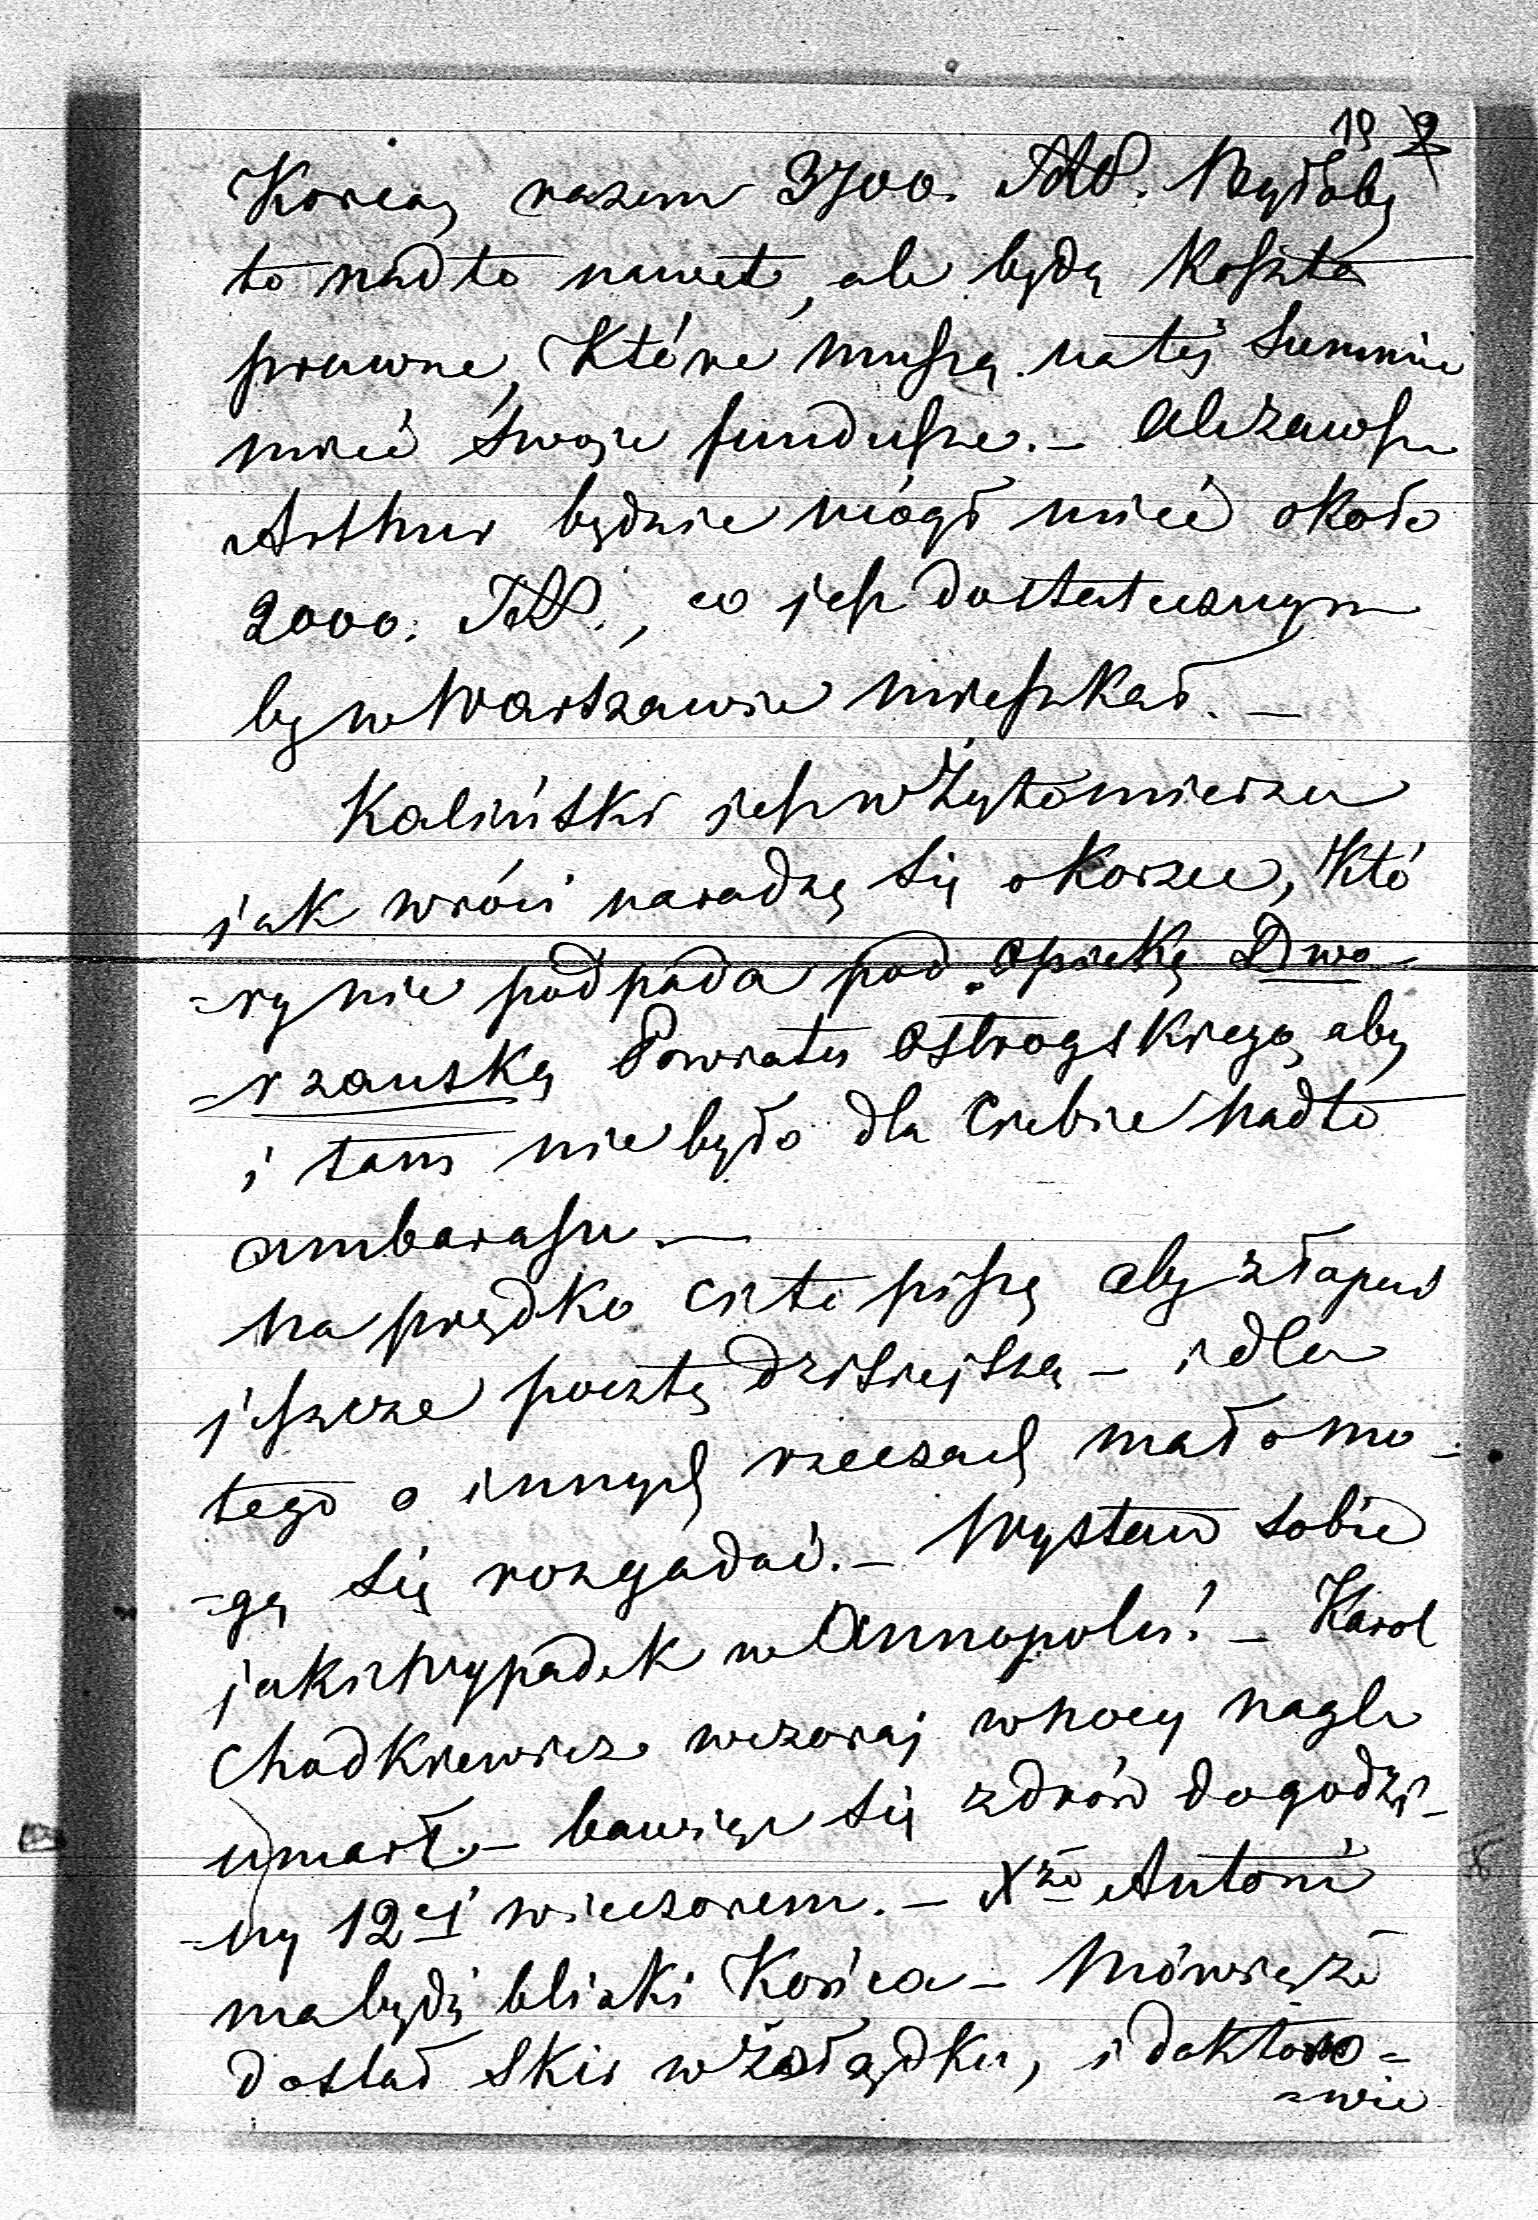 19 2
Korca, razem 3700. RSP. Byłoby
to nadto nawet, ale będą koszta
prawne, które muszą na tej Summie
mieć swoje fundusze. – Ale zawsze
Arthur będzie mógł mieć około
2000. RSP., co jest dostatecznym
by w Warszawie mieszkał. –
Kaliński jest w Żytomierzu
jak wróci naradzę się o Korzec, któ
=ry nie podpada pod opiekę Dwo-
=rzańską Powiatu Ostrogskiego, aby
i tam nie było dla Ciebie nadto
ambarasu –
Na prędko Ci to piszę aby złapać
jeszcze pocztę dzisiejszą – i dla
tego o innych rzeczach mało mo-
=gę się rozgadać. – Wystaw sobie
jaki wypadek w Annopolu! – Karol
Chodkiewicz wczoraj w nocy nagle
umarł – bawiąc się zdrów do godzi-
=ny 12ej wieczorem. – Xże Antoni
ma bydź blizki Końca – Mówią że
dostał Skir w żołądku, i dokto=
=wie